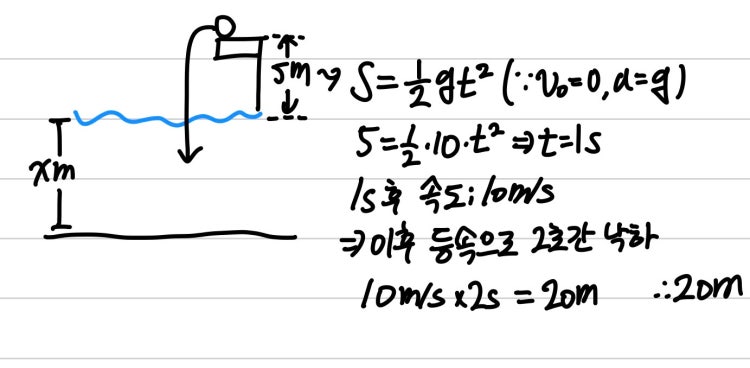 5m → S=½gt² (∵v₀=0, a=g)
5=½·10·t² ⇒ t=1s
xm
1s후 속도: 10m/s
⇒ 이후 등속으로 2초간 낙하
10m/s × 2s = 20m ∴20m